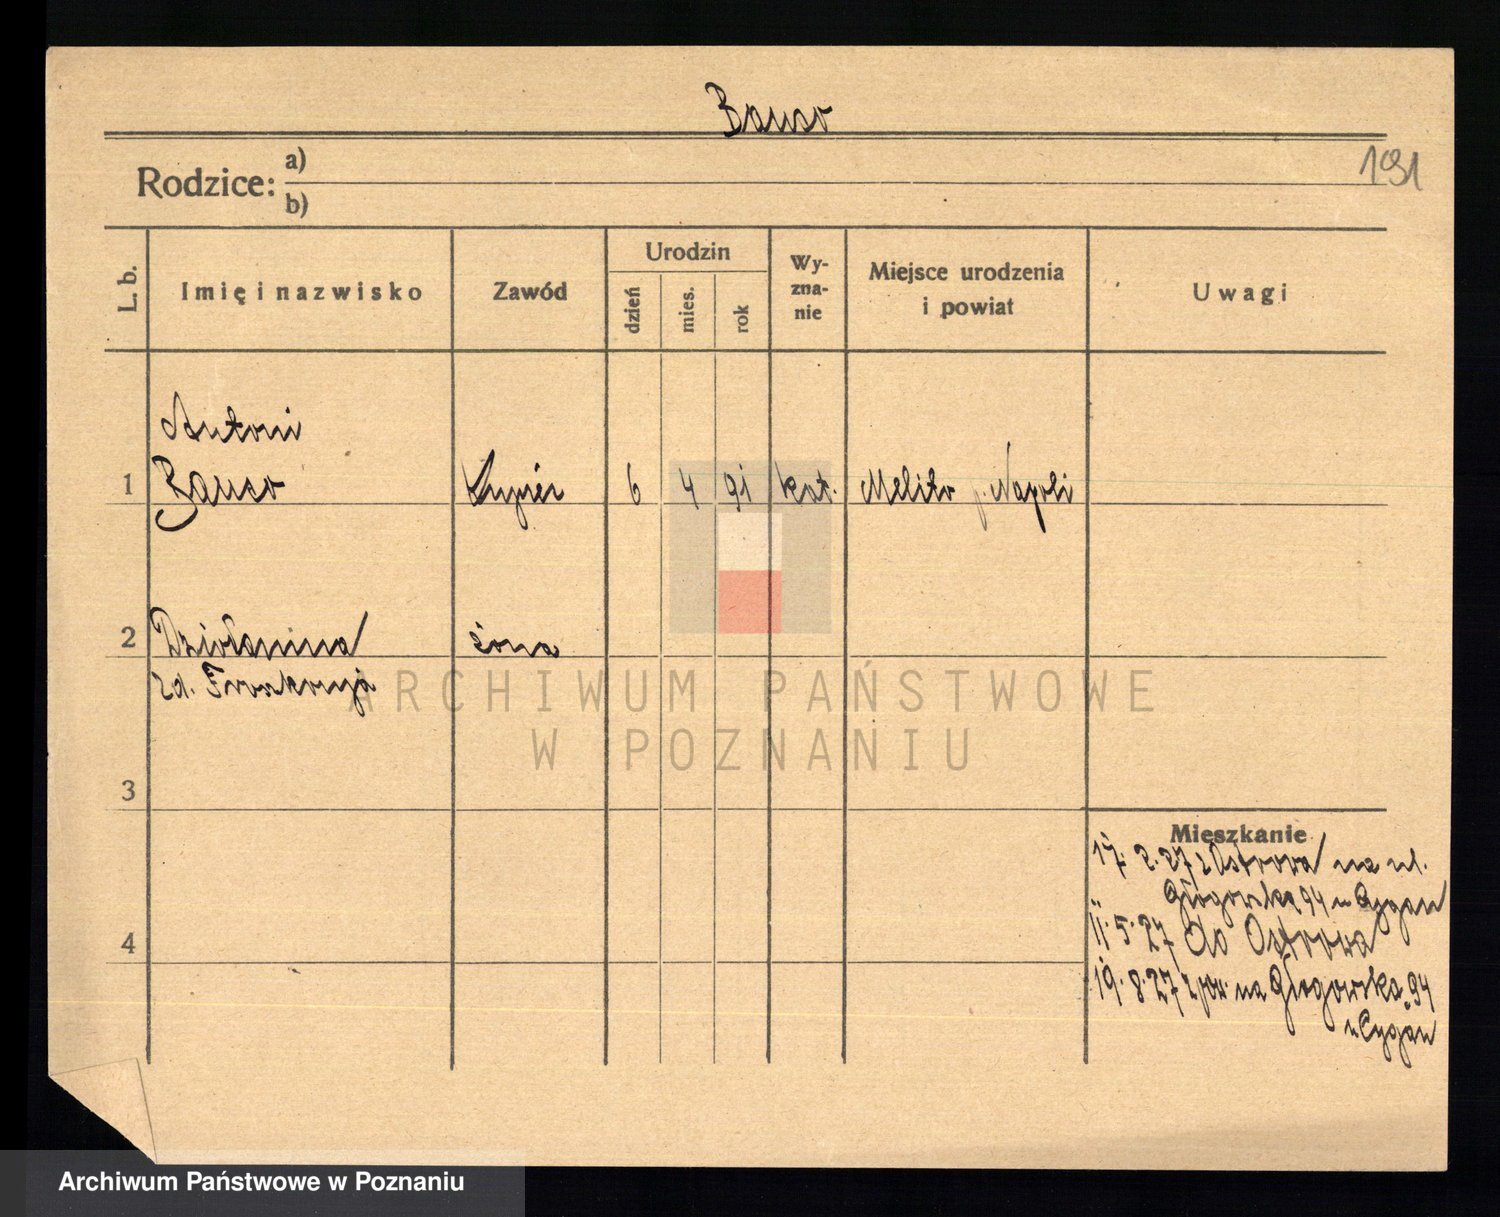 Bauso
Rodzice: a)
b)
191
L. b.
Imię i nazwisko
Zawód
Urodzin
dzień
mies.
rok
Wy-
zna-
nie
Miejsce urodzenia
i powiat
Uwagi
Antoni
1 Bauso 6 4 91 kat. Melito p. Napoli
2 żona
zd.
3
Mieszkanie
17. 2. 27 z Ostrowa na ul.
Głogowska 94 u Cygan
4
11. 5. 27 do Ostrowa
19. 8. 27 na Głogowska 94
u Cygan
ARCHIWUM PAŃSTWOWE
W POZNANIU
Archiwum Państwowe w Poznaniu